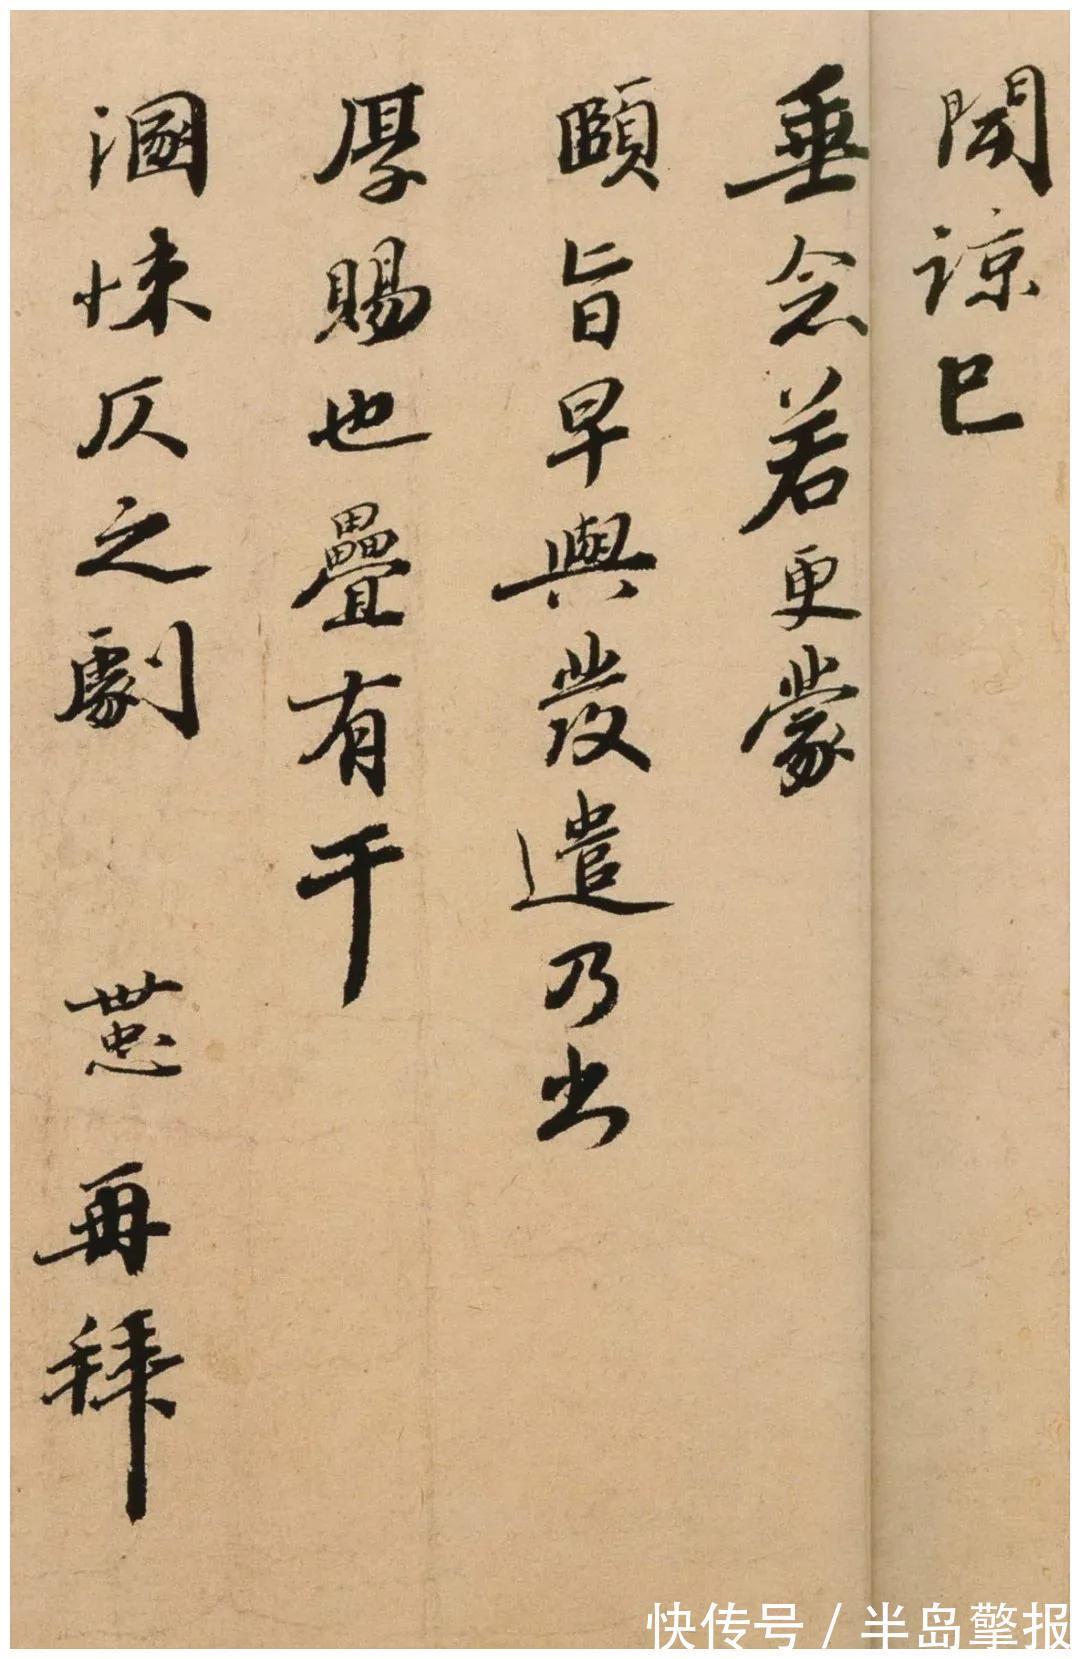 開諒已
垂念若更蒙
頤旨早與發遣乃出
厚賜也疊有干
溷悚仄之劇 世忠再拜
快传号/半岛警报